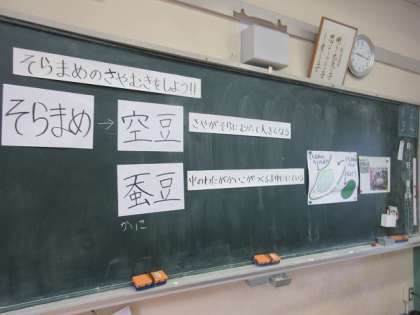 そらまめのさやむきをしよう!!
そらまめ
→
空豆
さやがそらにむかって大きくなる
蚕豆
中のわたがかいこがつくるまゆににている
かいこ